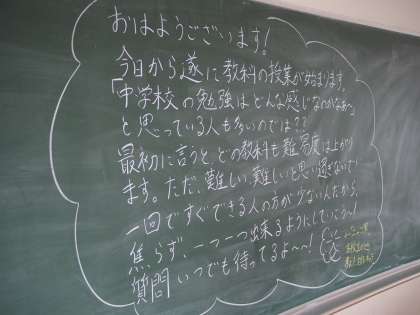 おはようございます!
今日から遂に教科の授業が始まります。
「中学校の勉強はどんな感じなのかなあ〜」
と思っている人も多いのでは??
最初に言うと、どの教科も難易度は上がり
ます。ただ、難しい、難しいと思い過ぎないで
一回ですぐできる人の方が少ないんだから、
焦らず、一つ一つ出来るようにしていこう〜!
質問いつでも待ってるよ〜〜!